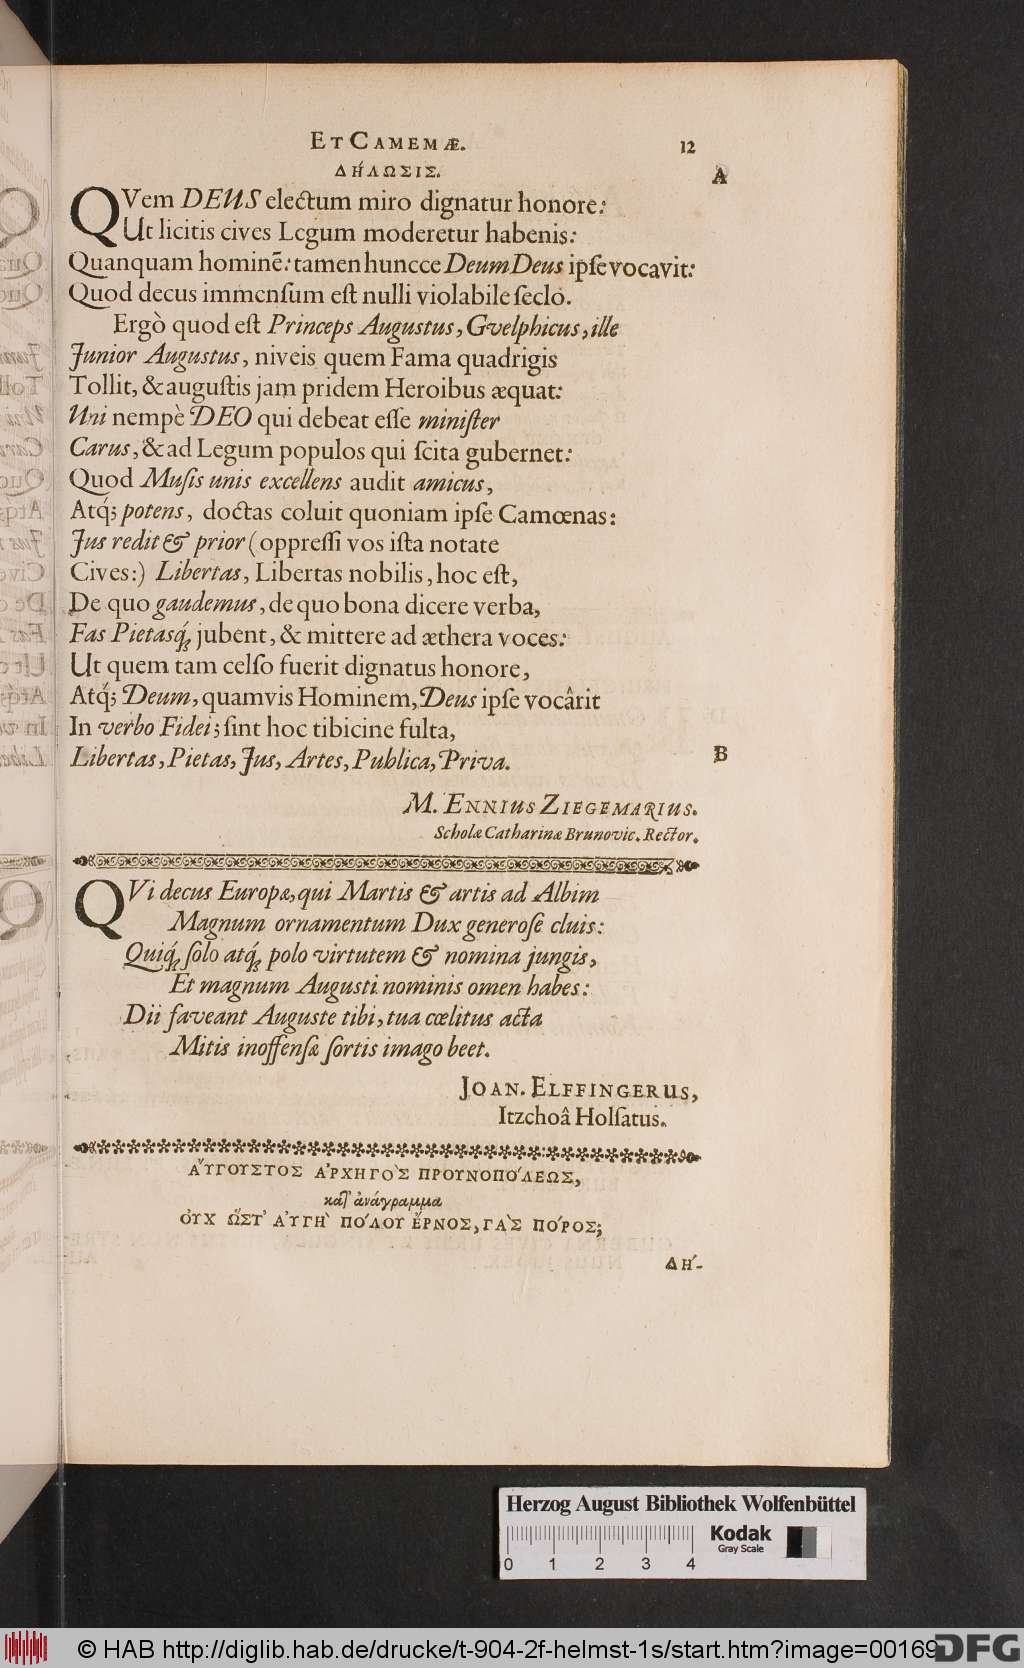 ET CAMEMÆ. 12
ΔΉΛΩΣΙΣ.
A
QVem DEUS electum miro dignatur honore:
Ut licitis cives Legum moderetur habenis:
Quanquam hominē: tamen huncce Deum Deus ipſe vocavit:
Quod decus immenſum eſt nulli violabile ſeclo.
Ergò quod eſt Princeps Auguſtus, Gvelphicus, ille
Junior Auguſtus, niveis quem Fama quadrigis
Tollit, & auguſtis jam pridem Heroibus æquat:
Uni nempè DEO qui debeat eſſe miniſter
Carus, & ad Legum populos qui ſcita gubernet:
Quod Muſis unis excellens audit amicus,
Atq́; potens, doctas coluit quoniam ipſe Camœnas:
Jus redit & prior (oppreſſi vos iſta notate
Cives:) Libertas, Libertas nobilis, hoc eſt,
De quo gaudemus, de quo bona dicere verba,
Fas Pietasq́; jubent, & mittere ad æthera voces:
Ut quem tam celſo fuerit dignatus honore,
Atq́; Deum, quamvis Hominem, Deus ipſe vocârit
In verbo Fidei; ſint hoc tibicine fulta,
Libertas, Pietas, Jus, Artes, Publica, Priva.
B
M. ENNIUS ZIEGEMARIUS.
Scholæ Catharinæ Brunovic. Rector.
QVi decus Europæ, qui Martis & artis ad Albim
Magnum ornamentum Dux generoſe cluis:
Quiq́; ſolo atq́; polo virtutem & nomina jungis,
Et magnum Auguſti nominis omen habes:
Dii faveant Auguſte tibi, tua cœlitus acta
Mitis inoffenſæ ſortis imago beet.
JOAN. ELFFINGERUS,
Itzchoâ Holſatus.
ἈΎΓΟΥΣΤΟΣ ἈΡΧΗΓῸΣ ΠΡΟΥΝΟΠΌΛΕΩΣ,
κατ' ἀνάγραμμα
ΟΥ̓Χ Ὥ̔ΣΤ' ΑΥ̓ΓῊ ΠΌΛΟΥ ἜΡΝΟΣ, ΓᾺΣ ΠΌΡΟΣ;
ΔΉ-
Herzog August Bibliothek Wolfenbüttel
Kodak
Gray Scale
0 1 2 3 4
© HAB http://diglib.hab.de/drucke/t-904-2f-helmst-1s/start.htm?image=00169
DFG